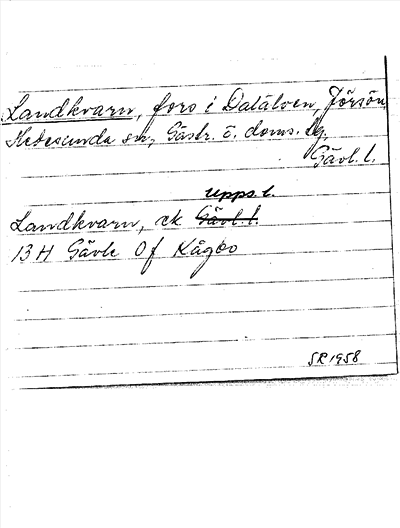 Landkvarn, fors i Dalälven, Jörsön,
Hedesunda sn, Gästr. ö. doms. dg,
Gävl. l.
Upps. l.
Landkvarn, ek Gävl. l.
13 H Gävle 0f Kågbo
SR 1958